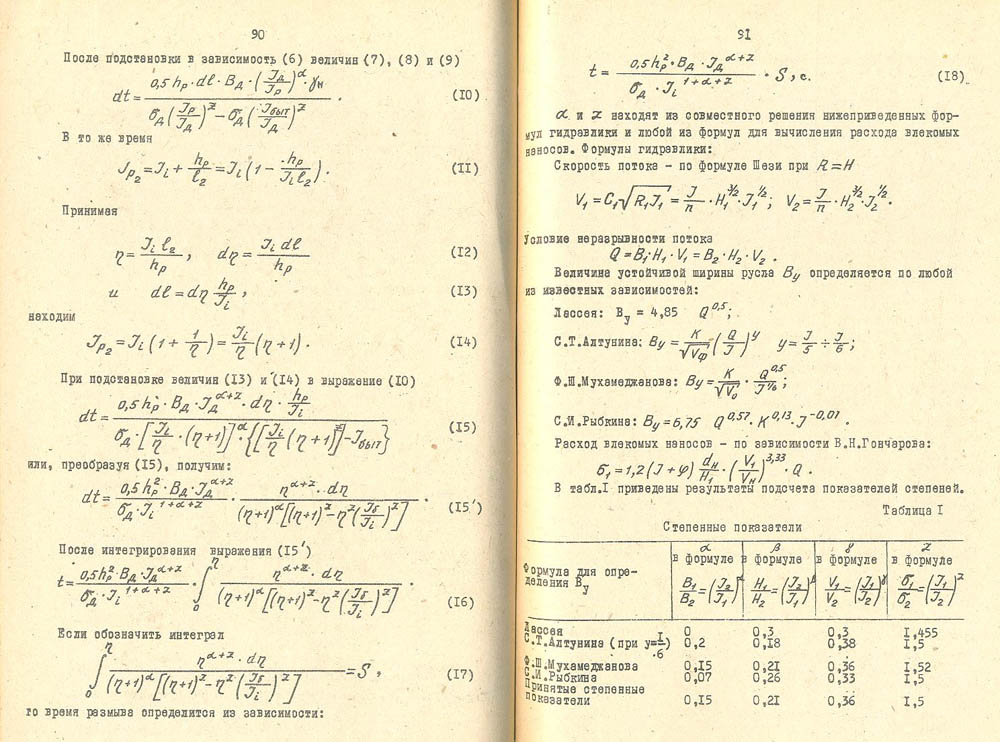 90
После подстановки в зависимость (6) величин (7), (8) и (9)
dt = \frac{0,5 h_p · dl · B_д · (\frac{J_д}{J_p})^α γ_н}{σ_д (\frac{J_p}{J_д})^z − σ_д (\frac{J_{быт}}{J_д})^z} . (10)
В то же время
J_{p_2} = J_i + \frac{h_p}{l_2} = J_i (1 − \frac{h_p}{J_i l_2}). (11)
Принимая
η = \frac{J_i l_2}{h_p} , dη = \frac{J_i dl}{h_p} (12)
и dl = dη \frac{h_p}{J_i} , (13)
находим
J_{p_2} = J_i (1 + \frac{1}{η}) = \frac{J_i}{η} (η + 1) . (14)
При подстановке величин (13) и (14) в выражение (10)
dt = \frac{0,5 h_p · B_д · J_д^{α+z} · dη · \frac{h_p}{J_i}}{σ_д · [\frac{J_i}{η} · (η+1)]^α · {[\frac{J_i}{η} (η+1)]^z − J_{быт}^z}} (15)
или, преобразуя (15), получим:
dt = \frac{0,5 h_p^2 · B_д · J_д^{α+z}}{σ_д · J_i^{1+α+z}} · \frac{η^{α+z} · dη}{(η+1)^α [(η+1)^z − η^z (\frac{J_б}{J_i})^z]} (15')
После интегрирования выражения (15')
t = \frac{0,5 h_p^2 · B_д · J_д^{α+z}}{σ_д · J_i^{1+α+z}} · ∫_0^η \frac{η^{α+z} · dη}{(η+1)^α [(η+1)^z − η^z (\frac{J_б}{J_i})^z]} . (16)
Если обозначить интеграл
∫_0^η \frac{η^{α+z} · dη}{(η+1)^α [(η+1)^z − η^z (\frac{J_б}{J_i})^z]} = S , (17)
то время размыва определится из зависимости:
91
t = \frac{0,5 h_p^2 · B_д · J_д^{α+z}}{σ_д · J_i^{1+α+z}} · S , с. (18)
α и z находят из совместного решения нижеприведенных фор-
мул гидравлики и любой из формул для вычисления расхода влекомых
наносов. Формулы гидравлики:
Скорость потока - по формуле Шези при R = H
V_1 = C_1 \sqrt{R_1 J_1} = \frac{1}{n} · H_1^{3/2} · J_1^{1/2} ; V_2 = \frac{1}{n} · H_2^{3/2} · J_2^{1/2} .
Условие неразрывности потока
Q = B_1 · H_1 · V_1 = B_2 · H_2 · V_2 .
Величина устойчивой ширины русла B_у определяется по любой
из известных зависимостей:
Лассея: B_у = 4,85 Q^{0,5} ;
С.Т.Алтунина: B_у = \frac{K}{\sqrt{V_ф}} (\frac{Q}{J})^y y = \frac{1}{5} ÷ \frac{1}{6} ;
Ф.Ш.Мухамеджанова: B_у = \frac{K}{\sqrt{V_0}} · \frac{Q^{0,5}}{J^{1/6}} ;
С.И.Рыбкина: B_у = 6,75 Q^{0,57} · K^{0,13} · J^{−0,07} .
Расход влекомых наносов - по зависимости В.Н.Гончарова:
σ_1 = 1,2 (1 + φ) \frac{d_н}{H_1} · (\frac{V_1}{V_н})^{3,33} · Q .
В табл.I приведены результаты подсчета показателей степеней.
Таблица I
Степенные показатели
Формула для опре-
деления B_у
α
в формуле
\frac{B_1}{B_2} = (\frac{J_2}{J_1})^α
β
в формуле
\frac{H_1}{H_2} = (\frac{J_2}{J_1})^β
γ
в формуле
\frac{V_1}{V_2} = (\frac{J_1}{J_2})^γ
z
в формуле
\frac{σ_1}{σ_2} = (\frac{J_1}{J_2})^z
Лассея 0 0,3 0,3 1,455
С.Т.Алтунина (при y=\frac{1}{6}) 0,2 0,18 0,38 1,5
Ф.Ш.Мухамеджанова 0,15 0,21 0,36 1,52
С.И.Рыбкина 0,07 0,26 0,33 1,5
Принятые степенные
показатели 0,15 0,21 0,36 1,5